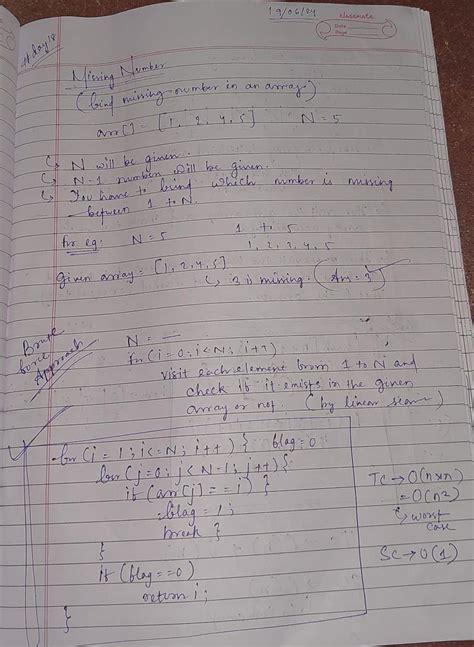 19/06/24
classmate
Date
Page
Missing Number
(find missing number in an array)
arr[] = [1, 2, 4, 5] N = 5
N will be given.
N-1 number will be given.
You have to find which number is missing
between 1 to N.
for eg: N = 5 1 to 5
1, 2, 3, 4, 5
Given array = [1, 2, 4, 5]
3 is missing. (Ans = 3)
Brute
force
Approach
N = —
for (i = 0; i < N; i++)
visit each element from 1 to N and
check if it exists in the given
array or not. (by linear search)
for (i = 1; i <= N; i++) { flag = 0
for (j = 0; j < N-1; j++) {
if (arr[j] == i) {
flag = 1;
break }
}
if (flag == 0)
return i;
}
TC → O(n×n)
= O(n2)
↳ worst
case
SC → O(1)